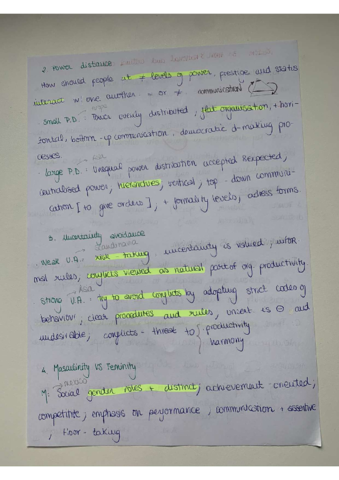 2. Power distance
How should people at ≠ levels of power, prestige and status
interact w one another = or ≠ communication
Small P.D. : Power evenly distributed, flat organisation, + hori-
zontal, bottom-up communication, democratic d-making pro-
cesses.
Large P.D. : Unequal power distribution accepted & expected,
centralised power, hierarchies, vertical, top-down communi-
cation [to give orders], + formality levels, adress forms
3. Uncertainty avoidance
Weak U.A. : risk taking, uncertainty is valued,
rules, conflicts viewed as natural part of org productivity
Strong U.A. : Try to avoid conflicts by adopting strict codes of
behaviour, clear procedures and rules, uncert is ⊖ and
undesirable, conflicts = threat to { productivity
harmony
4. Masculinity VS Feminity
M: Social gender roles + distinct, achievement-oriented,
competitive, emphasis on performance, communication + assertive
, floor-taking